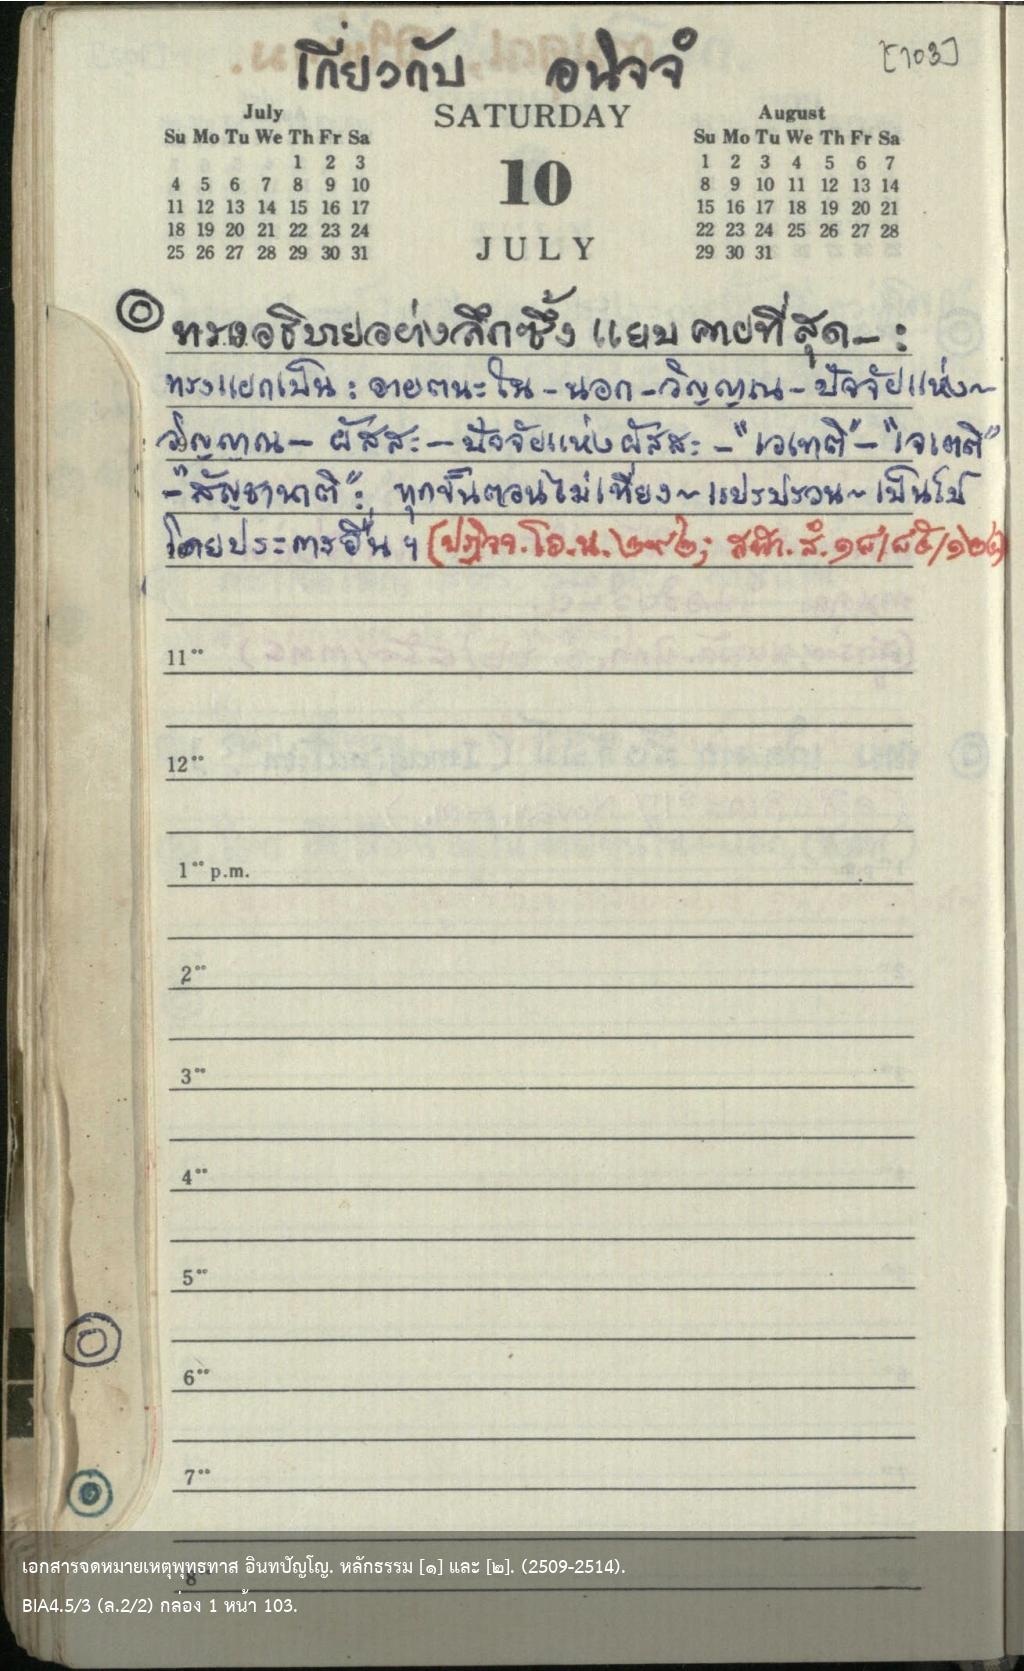 เกี่ยวกับ อนิจจํ
[103]
July
Su Mo Tu We Th Fr Sa
1 2 3
4 5 6 7 8 9 10
11 12 13 14 15 16 17
18 19 20 21 22 23 24
25 26 27 28 29 30 31
SATURDAY
10
JULY
August
Su Mo Tu We Th Fr Sa
1 2 3 4 5 6 7
8 9 10 11 12 13 14
15 16 17 18 19 20 21
22 23 24 25 26 27 28
29 30 31
ทรงอธิบายอย่างลึกซึ้ง แยบคายที่สุด–:
ทรงแยกเป็น: อายตนะใน–นอก–วิญญาณ–ปัจจัยแห่ง~
วิญญาณ– ผัสสะ–ปัจจัยแห่งผัสสะ–"เวเทติ"–"เจเตติ"
–"สัญชานาติ": ทุกขั้นตอนไม่เที่ยง~แปรปรวน~เป็นไป
โดยประการอื่น ฯ (ปฏิจจ.โอ.น.๒๙๒; สฬา.สํ.๑๘/๘๕/๑๒๔)
11°°
12°°
1°° p.m.
2°°
3°°
4°°
5°°
6°°
7°°
8°°
เอกสารจดหมายเหตุพุทธทาส อินทปัญโญ. หลักธรรม [๑] และ [๒]. (2509-2514).
BIA4.5/3 (ล.2/2) กล่อง 1 หน้า 103.